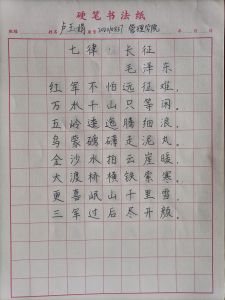 硬笔书法纸
姓名 管理学院
七律·长征
毛泽东
红军不怕远征难,
万水千山只等闲.
五岭逶迤腾细浪,
乌蒙磅礴走泥丸.
金沙水拍云崖暖,
大渡桥横铁索寒.
更喜岷山千里雪,
三军过后尽开颜.